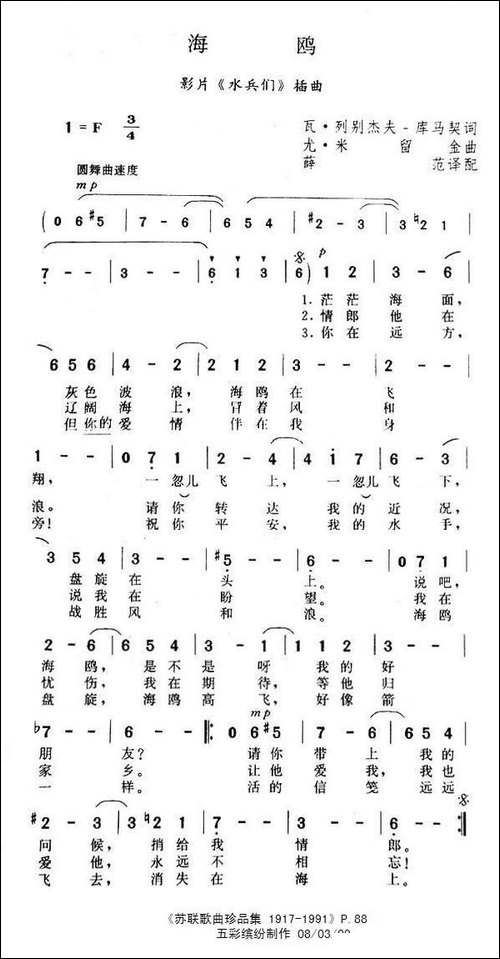 海 鸥
影片《水兵们》插曲
1=F 3/4
瓦·列别杰夫-库马契词
尤·米留金曲
薛范译配
圆舞曲速度
mp
(0 6 #5 | 7 - 6 | 6 5 4 | #2 - 3 | 3 ♮2 1 |
7 - - | 3 - - | 6 1 3 | 6) 1 2 | 3 - 6 |
p
1.茫茫 海 面,
2.情郎 他 在
3.你在 远 方,
6 5 6 | 4 - 2 | 2 1 2 | 3 - - | 3 - 2 |
灰色 波 浪, 海鸥 在 飞
辽阔 海 上, 冒着 风 和
但你的 爱 情 伴在 我 身
1 - - | 0 7 1 | 2 - 2 | 4 1 7 | 6 - 3 |
翔, 一忽儿 飞 上, 一忽儿 飞 下,
浪。 请你 转 达 我的 近 况,
旁! 祝你 平 安, 我的 水 手,
3 5 4 | 3 - - | #5 - - | 6 - - | 0 7 1 |
盘旋 在 头 上。 说吧,
说我 在 盼 望。 我在
战胜 风 和 浪。 海鸥
2 - 6 | 6 5 4 | 3 - 6 | 1 1 2 | 3 - 2 |
海 鸥, 是不 是 呀 我的 好
忧 伤, 我在 期 待, 等他 归
盘 旋, 海鸥 高 飞, 好像 箭
mp
♭7 - - | 6 - - :‖ 0 6 #5 | 7 - 6 | 6 5 4 |
朋 友? 请你 带 上 我的
家 乡。 让他 爱 我, 我也
一 样。 活的 信 笺 远远
#2 - 3 | 3 ♮2 1 | 7 - - | 3 - - | 6 - :‖
问 候, 捎给 我 情 郎。
爱 他, 永远 不 相 忘!
飞 去, 消失 在 海 上。
《苏联歌曲珍品集 1917-1991》P.88
五彩缤纷制作 08/03/